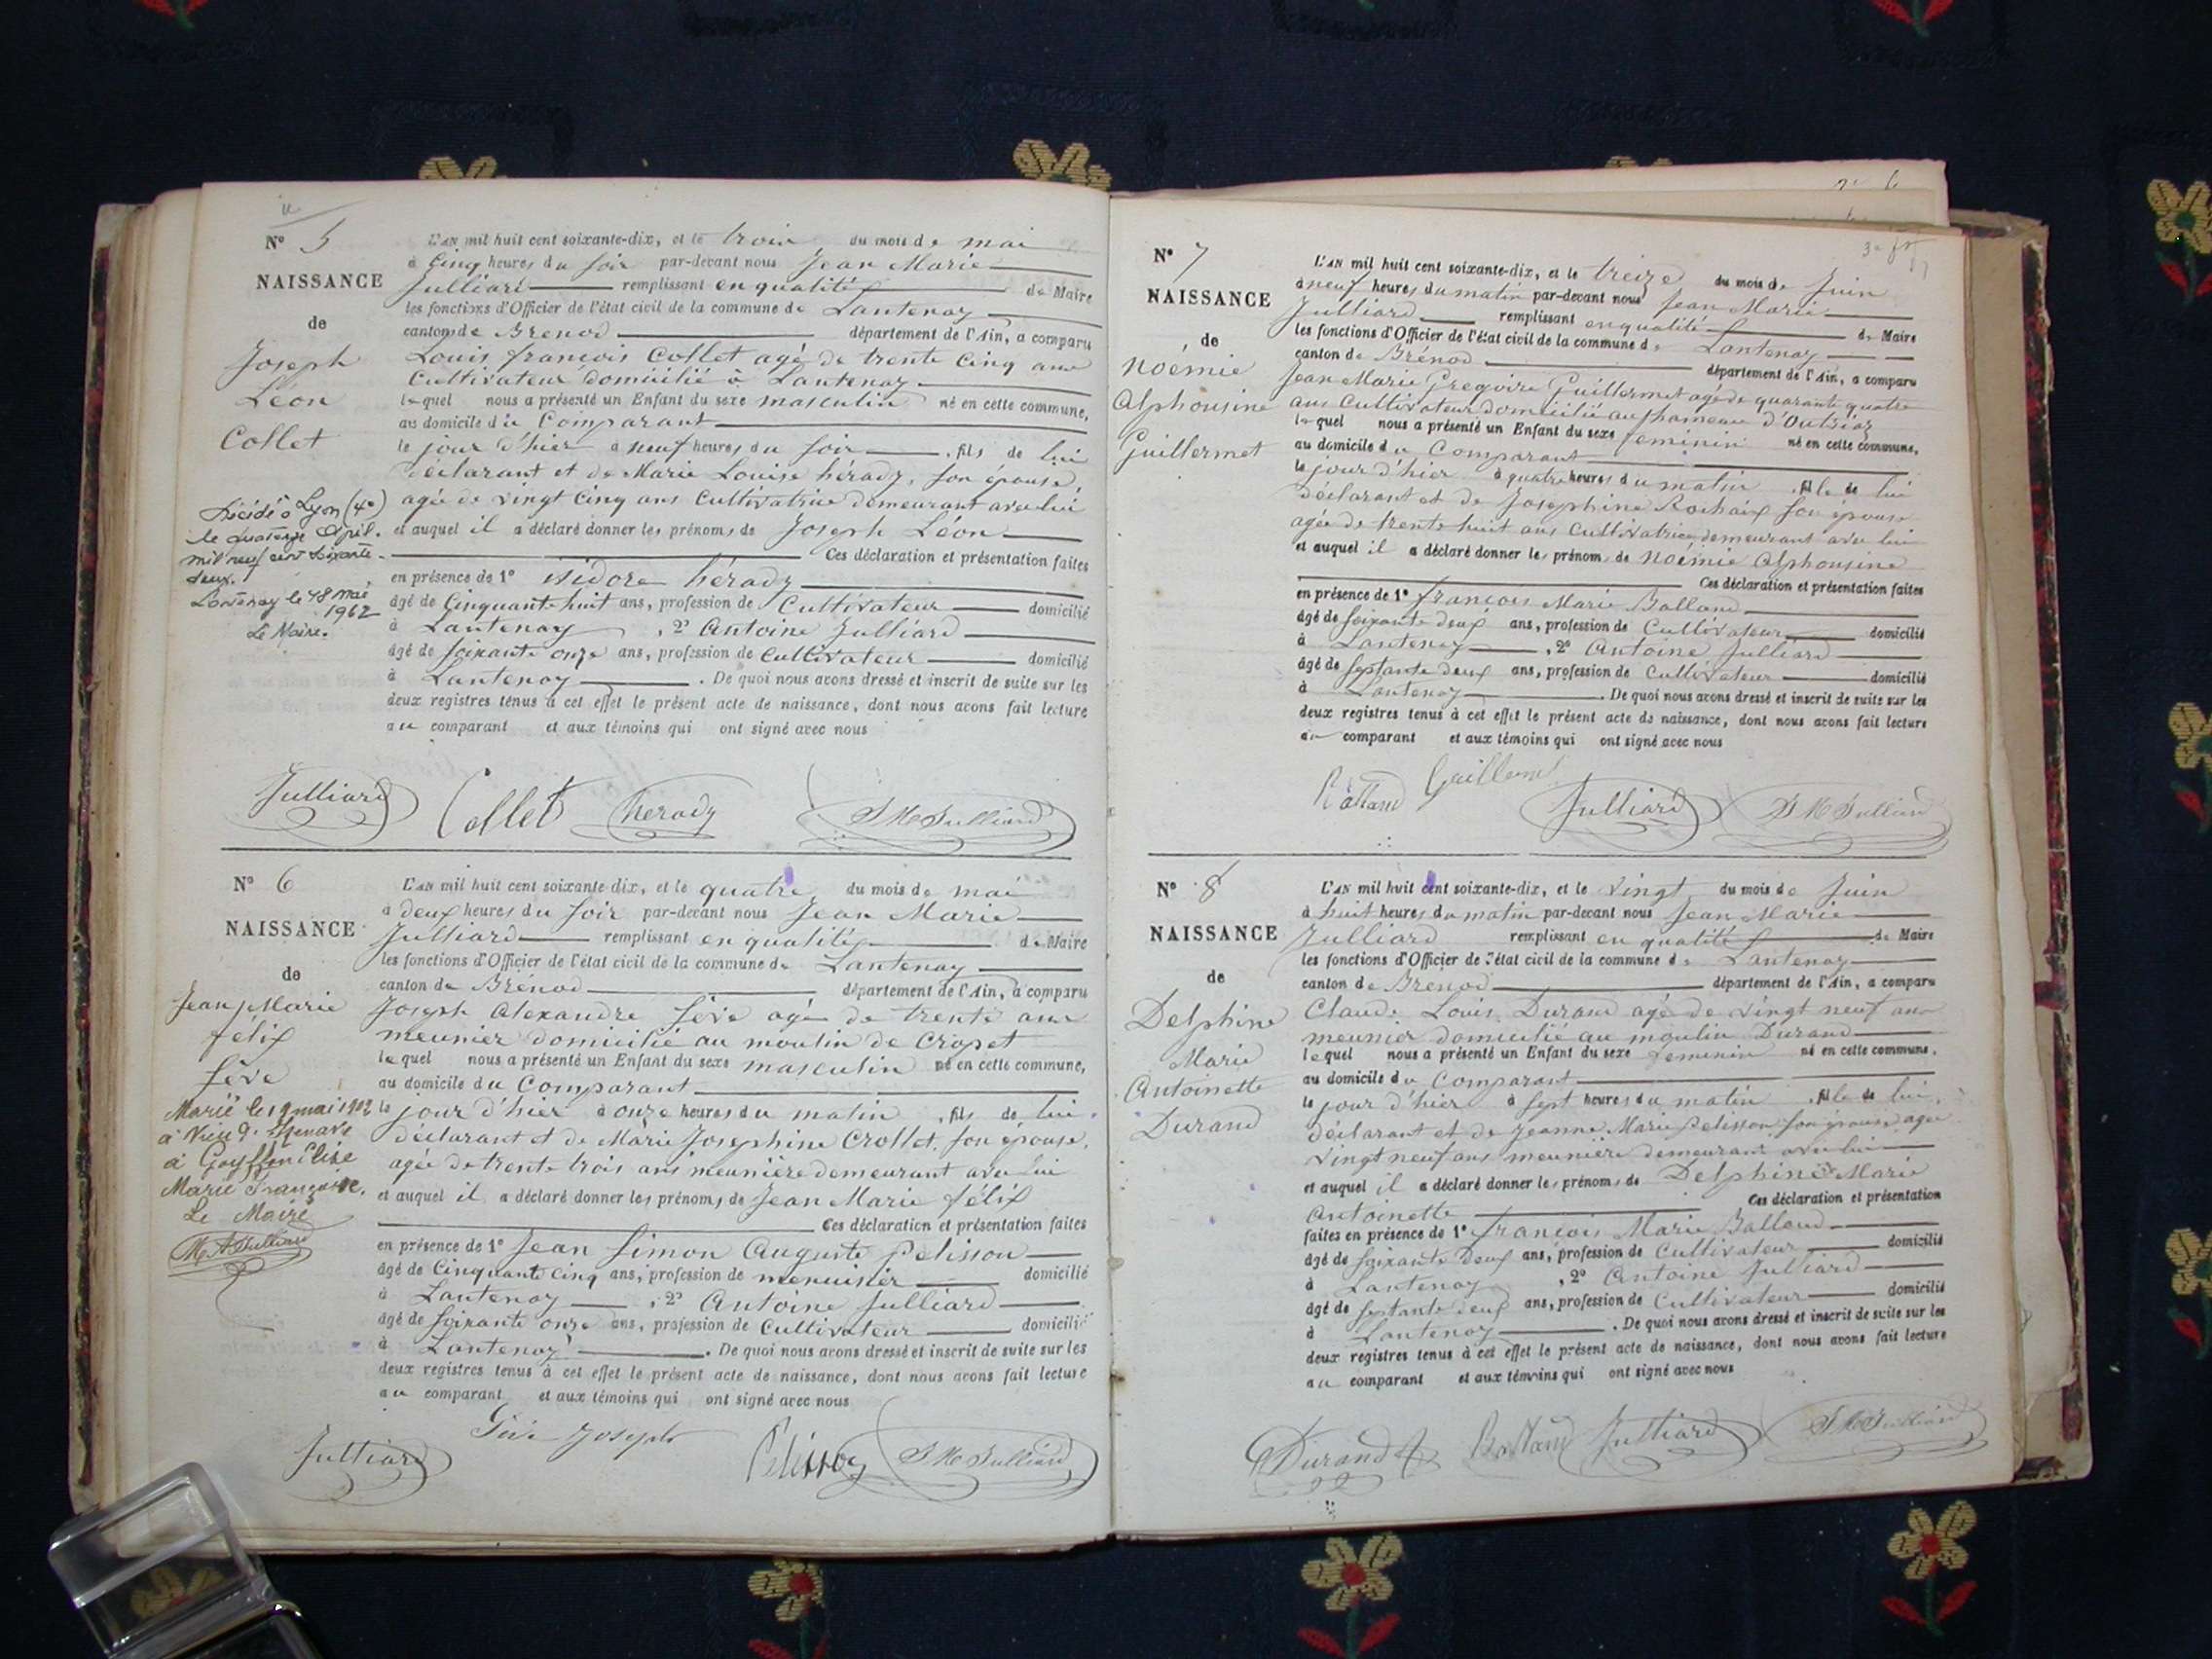 Nº 5
NAISSANCE
de
Joseph
Léon
Collet
Décédé à Lyon (4e)
le quatorze Avril
mil neuf cent soixante-
deux.
Lantenay le 18 mai
1962
Le Maire.
L'AN mil huit cent soixante-dix, et le trois du mois de mai
à cinq heures du soir par-devant nous Jean Marie
Julliard remplissant en qualité de Maire
les fonctions d'Officier de l'état civil de la commune de Lantenay
canton de Brenod département de l'Ain, a comparu
Louis françois Collet agé de trente cinq ans
cultivateur domicilié à Lantenay
lequel nous a présenté un Enfant du sexe masculin né en cette commune,
au domicile du Comparant
le jour d'hier à neuf heures du soir, fils de lui
déclarant et de Marie Louise hérady, son épouse,
agée de vingt cinq ans cultivatrice demeurant avec lui
et auquel il a déclaré donner les prénoms de Joseph Léon
Ces déclaration et présentation faites
en présence de 1º isidore hérady
âgé de Cinquante huit ans, profession de Cultivateur domicilié
à Lantenay, 2º Antoine Julliard
âgé de soixante onze ans, profession de cultivateur domicilié
à Lantenay. De quoi nous avons dressé et inscrit de suite sur les
deux registres tenus à cet effet le présent acte de naissance, dont nous avons fait lecture
au comparant et aux témoins qui ont signé avec nous
Julliard Collet herady JM Julliard
Nº 6
NAISSANCE
de
Jean Marie
félix
Sève
Marié le 19 mai 1902
à Vieu d'Izenave
à Goyffon Elise
Marie Françoise.
Le Maire
L'AN mil huit cent soixante-dix, et le quatre du mois de mai
à deux heures du soir par-devant nous Jean Marie
Julliard remplissant en qualité de Maire
les fonctions d'Officier de l'état civil de la commune de Lantenay
canton de Brénod département de l'Ain, a comparu
Joseph Alexandre Sève agé de trente ans
meunier domicilié au moulin de Cropet
lequel nous a présenté un Enfant du sexe masculin né en cette commune,
au domicile du Comparant
le jour d'hier à onze heures du matin, fils de lui
déclarant et de Marie Josephine Crollet, son épouse,
agée de trente trois ans meunière demeurant avec lui
et auquel il a déclaré donner les prénoms de Jean Marie félix
Ces déclaration et présentation faites
en présence de 1º Jean Simon Auguste Pelisson
âgé de Cinquante cinq ans, profession de menuisier domicilié
à Lantenay, 2º Antoine Julliard
âgé de soixante onze ans, profession de Cultivateur domicilié
à Lantenay. De quoi nous avons dressé et inscrit de suite sur les
deux registres tenus à cet effet le présent acte de naissance, dont nous avons fait lecture
au comparant et aux témoins qui ont signé avec nous
Julliard Sève Joseph Pélisson JM Julliard
Nº 7
NAISSANCE
de
Noémie
Alphonsine
Guillermet
L'AN mil huit cent soixante-dix, et le treize du mois de Juin
à neuf heures du matin par-devant nous Jean Marie
Julliard remplissant en qualité de Maire
les fonctions d'Officier de l'état civil de la commune de Lantenay
canton de Brénod département de l'Ain, a comparu
Jean Marie Gregoire Guillermet agé de quarante quatre
ans Cultivateur domicilié au hameau d'Outriaz
lequel nous a présenté un Enfant du sexe feminin né en cette commune,
au domicile du Comparant
le jour d'hier à quatre heures du matin, fille de lui
déclarant et de Josephine Rochaix son épouse
agée de trente huit ans cultivatrice demeurant avec lui
et auquel il a déclaré donner les prénoms de noémie Alphonsine
Ces déclaration et présentation faites
en présence de 1º françois Marie Balland
âgé de soixante deux ans, profession de Cultivateur domicilié
à Lantenay, 2º Antoine Julliard
âgé de septante deux ans, profession de Cultivateur domicilié
à Lantenay. De quoi nous avons dressé et inscrit de suite sur les
deux registres tenus à cet effet le présent acte de naissance, dont nous avons fait lecture
au comparant et aux témoins qui ont signé avec nous
Balland Guillermet Julliard JM Julliard
Nº 8
NAISSANCE
de
Delphine
Marie
Antoinette
Durand
L'AN mil huit cent soixante-dix, et le vingt du mois de Juin
à huit heures du matin par-devant nous Jean Marie
Julliard remplissant en qualité de Maire
les fonctions d'Officier de l'état civil de la commune de Lantenay
canton de Brenod département de l'Ain, a comparu
Claude Louis Durand agé de vingt neuf ans
meunier domicilié au moulin Durand
lequel nous a présenté un Enfant du sexe feminin né en cette commune,
au domicile du Comparant
le jour d'hier à sept heures du matin, fille de lui,
déclarant et de Jeanne Marie Pelisson son épouse agée
vingt neuf ans meunière demeurant avec lui
et auquel il a déclaré donner les prénoms de Delphine Marie
Antoinette Ces déclaration et présentation
faites en présence de 1º françois Marie Balland
âgé de soixante Deux ans, profession de Cultivateur domicilié
à Lantenay, 2º Antoine Julliard
âgé de septante deux ans, profession de Cultivateur domicilié
à Lantenay. De quoi nous avons dressé et inscrit de suite sur les
deux registres tenus à cet effet le présent acte de naissance, dont nous avons fait lecture
au comparant et aux témoins qui ont signé avec nous
Durand Balland Julliard JM Julliard